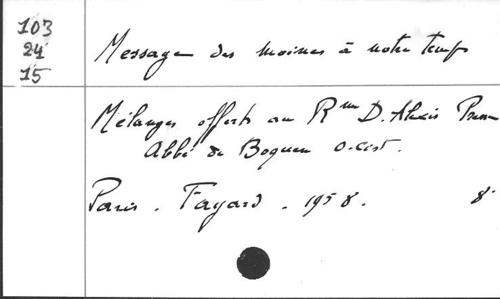 103
24
15
Message des moines à notre temps
Mélanges offerts au Rme D. Alexis Presse
Abbé de Boquen O.cist.
Paris. Fayard. 1958. 8°